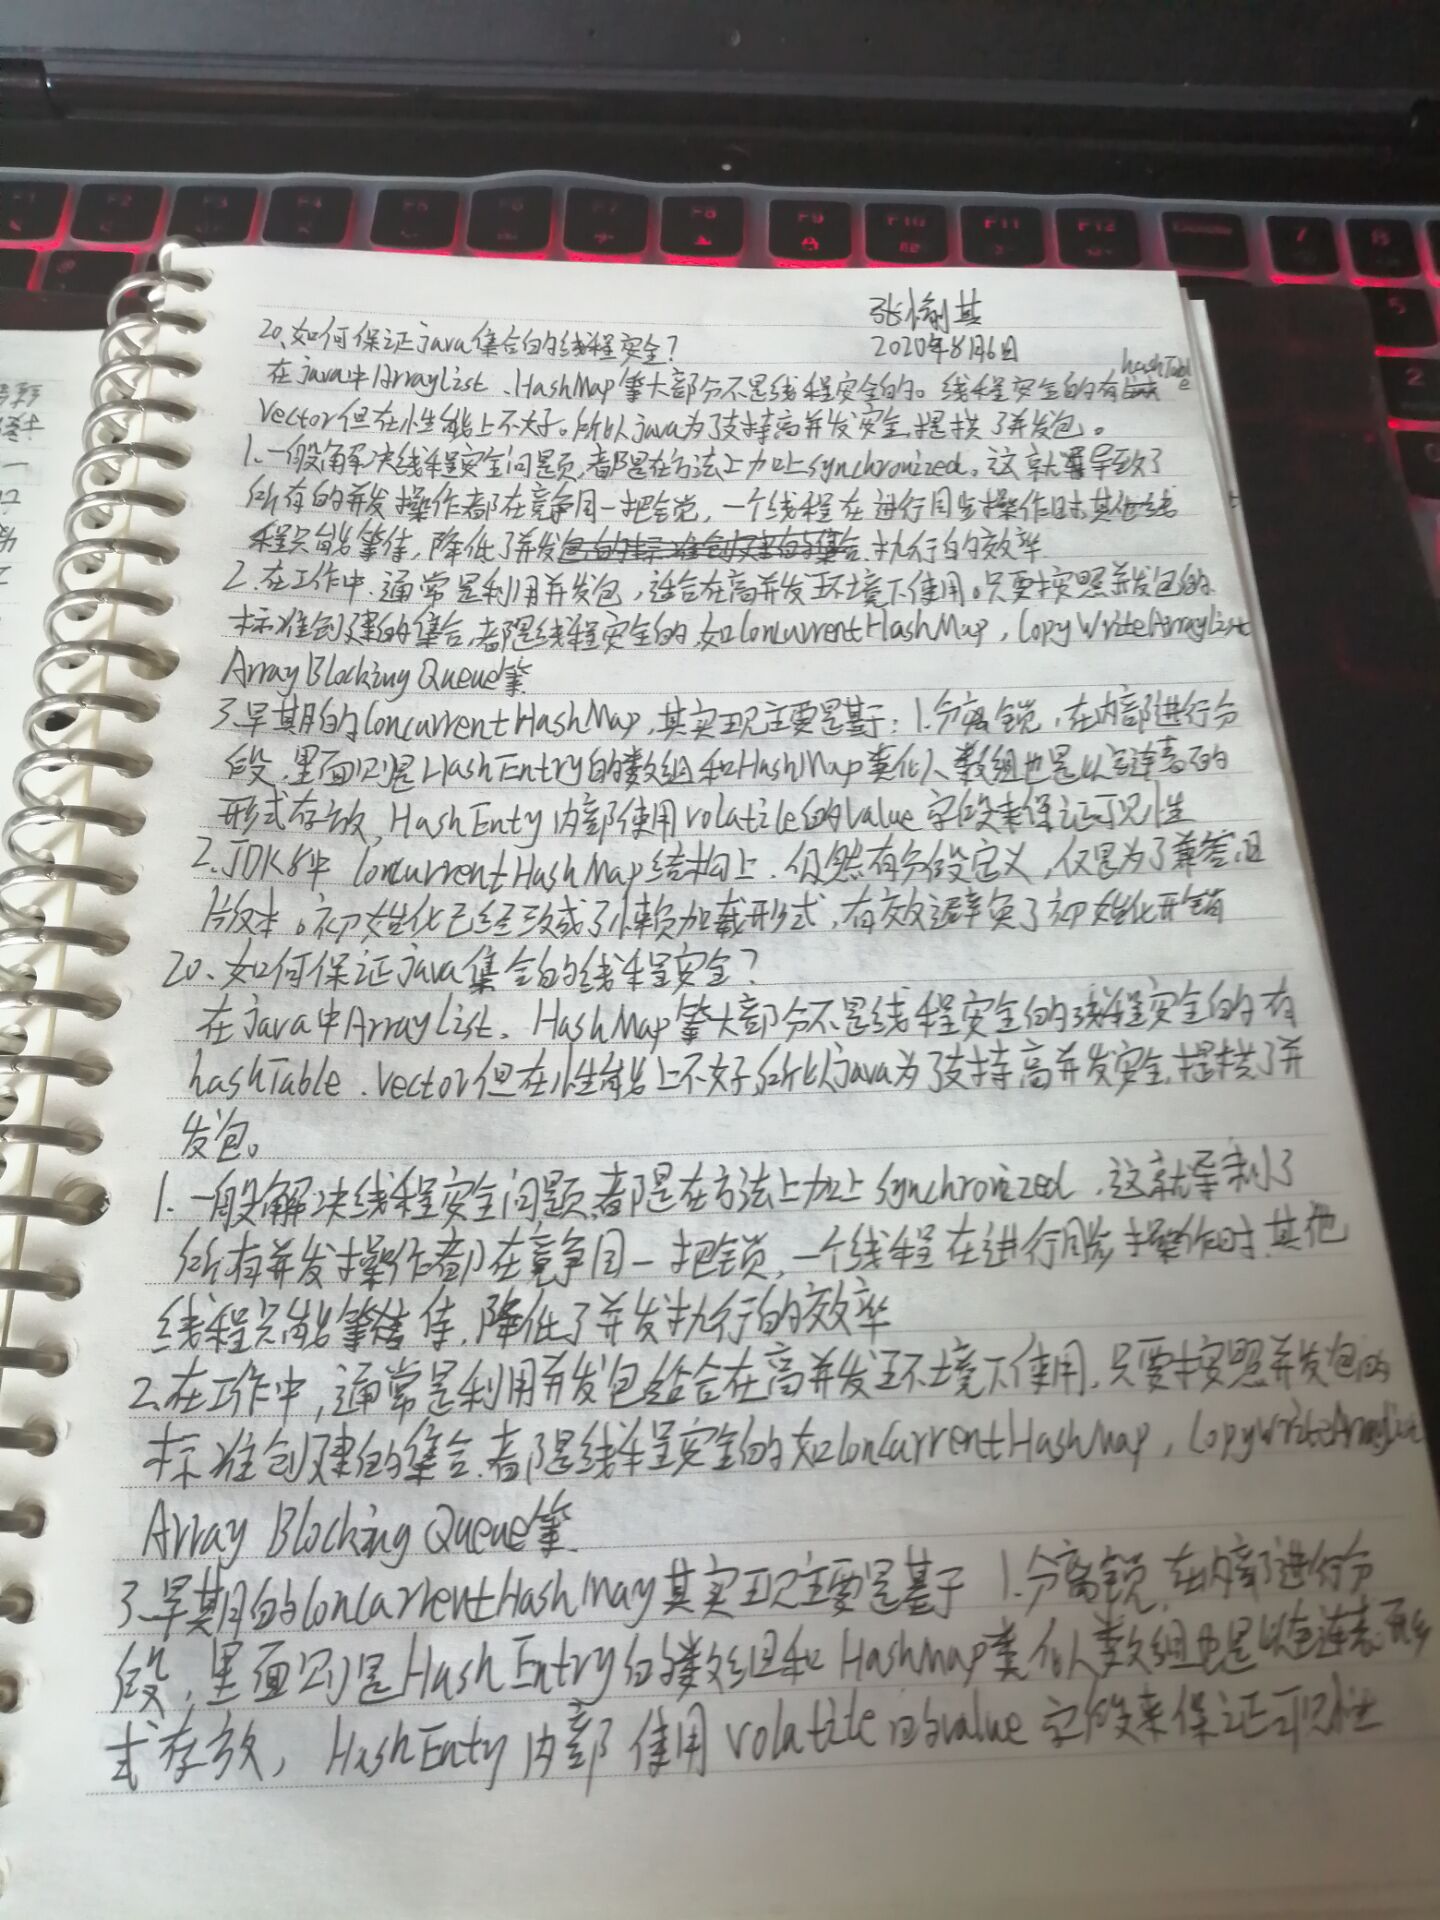 张愉其
20、如何保证java集合的线程安全？
2020年8月6日
在java中ArrayList、HashMap等大部分不是线程安全的。线程安全的有hashTable
Vector但在性能上不太好。所以java为了支持高并发安全,提拱了并发包。
1.一般解决线程安全问题,都是在方法上加上synchronized。这就导致了
所有的并发操作都在竞争同一把锁，一个线程在进行同步操作时,其他线
程只能等待,降低了并发执行的效率
2.在工作中,通常是利用并发包,适合在高并发环境下使用。只要按照并发包的
标准创建的集合,都是线程安全的,如ConcurrentHashMap,CopyWriteArrayList
ArrayBlockingQueue等
3.早期的ConcurrentHashMap,其实现主要是基于:1.分离锁,在内部进行分
段,里面则是HashEntry的数组和HashMap类似数组也是以链表的
形式存放,HashEnty内部使用volatile的value字段来保证可见性
2.JDK8中ConcurrentHashMap结构上,仍然有分段定义,仅是为了兼容旧
版本。初始化已经改成了懒加载形式,有效避免了初始化开销
20、如何保证java集合的线程安全?
在java中ArrayList、HashMap等大部分不是线程安全的线程安全的有
hashTable、Vector但在性能上不太好,所以java为了支持高并发安全,提拱了并
发包。
1.一般解决线程安全问题,都是在方法上加上synchronized,这就导致了
所有并发操作都在竞争同一把锁,一个线程在进行同步操作时,其他
线程只能等待,降低了并发执行的效率
2.在工作中,通常是利用并发包适合在高并发环境下使用,只要按照并发包的
标准创建的集合,都是线程安全的如ConcurrentHashMap,CopyWriteArrayList
Array Blocking Queue等
3.早期的ConcarrentHashMay其实现主要是基于 1.分离锁,在内部进行分
段,里面则是HashEntry的数组和HashMap类似数组也是以链表形
式存放,HashEnty内部使用volatile的value字段来保证可见性